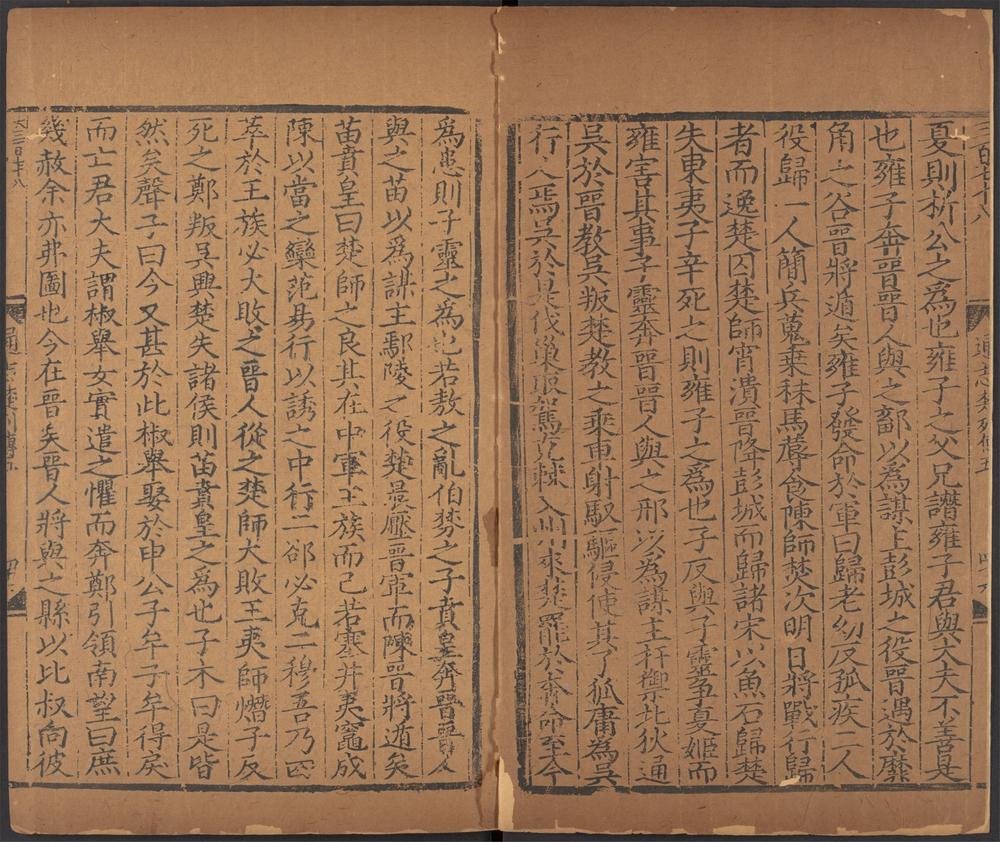 夏則析公之爲也雍子之父兄譖雍子君與大夫不善是
也雍子奔晉晉人與之鄐以爲謀主彭城之役晉遇於靡
角之谷晉將遁矣雍子發命於軍曰歸老幼反孤疾二人
役歸一人簡兵蒐乗秣馬蓐食陳師焚次明日將戰行歸
者而逸楚囚楚師宵潰晉降彭城而歸諸宋以魚石歸楚
失東夷子辛死之則雍子之爲也子反與子靈爭夏姬而
雍害其事子靈奔晉晉人與之邢以爲謀主扞禦北狄通
吳於晉教吳叛楚教之乗車射馭驅侵使其子狐庸為吳
行人焉吳於是伐巢取駕克棘入州來楚罷於奔命至今
爲患則子靈之為也若敖之亂伯賁之子賁皇奔晉晉人
與之苗以爲謀主鄢陵之役楚晨壓晉軍而陳晉將遁矣
苗賁皇曰楚師之良其在中軍王族而已若塞井夷竈成
陳以當之欒范昜行以誘之中行二郤必克二穆吾乃四
萃於王族必大敗之晉人從之楚師大敗王夷師熸子反
死之鄭叛吳興楚失諸侯則苗賁皇之為也子木曰是皆
然矣聲子曰今又甚於此椒舉娶於申公子牟子牟得戾
而亡君大夫謂椒舉女實遣之懼而奔鄭引領南望曰庶
幾赦余亦弗圖也今在晉矣晉人將與之縣以比叔向彼